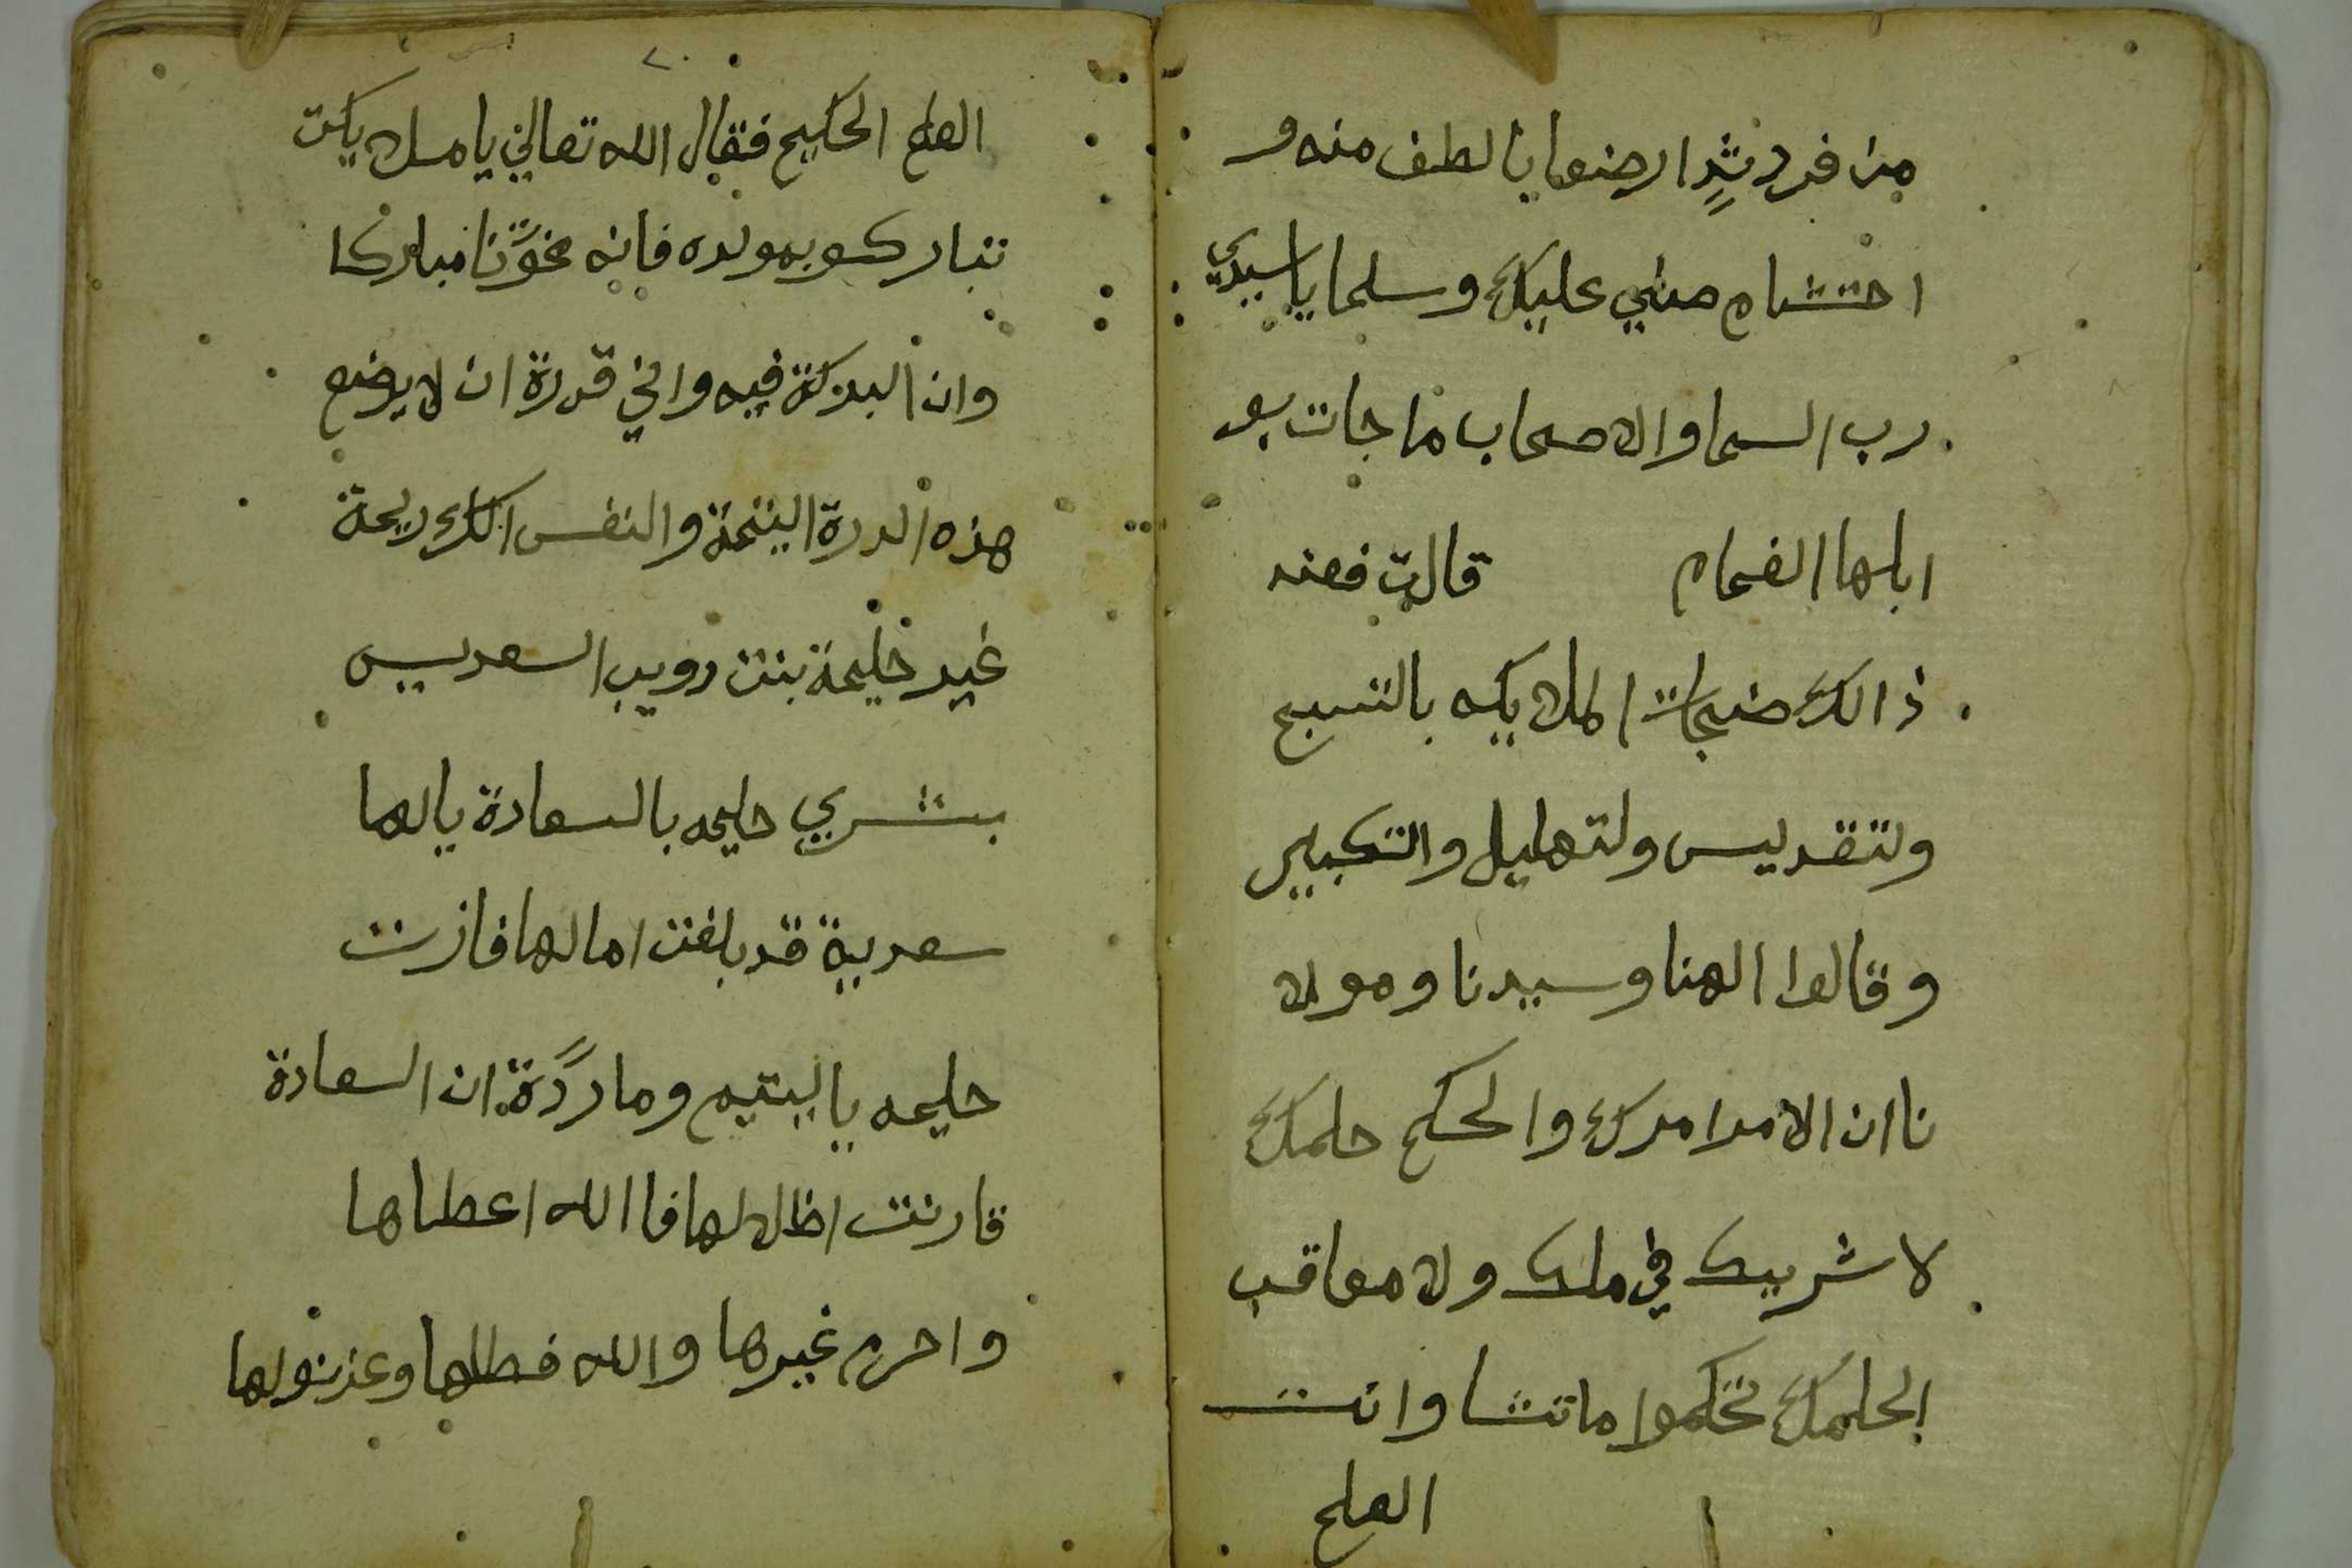 من فرد ثدٍ ارضعا بالطف منه و
احتشام مني عليك وسلما يا سيدي
رب السما والاصحاب ما جات بعد
ابلها الغمام قالت فعند
ذالك ضجات الملايكه بالتسبيح
ولتقديس ولتهليل والتكبير
وقالوا الهنا وسيدنا ومولا
نا ان الامر امرك والحكم حلمك
لا شريك في ملك ولا معاقب
لحلمك تحكموا ما تشا وانت
العلم
٢٠
العلم الحكيم فقال الله تعالي يا ملايكت
تباركو بمولده فانه مباركا
وان البركة فيه واني قدرة ان لا يرضع
هذه الدرة اليتمة والنفس الكريمة
غير حليمة بنت دويب السعديه
بشري حليمه بالسعادة يا لها
سعدية قد بلغت امالها فازت
حليمه يا ليتيم وما ردَّة ان السعادة
قارنت اظلالها فا الله اعطاها
واحرم غيرها والله فضلها